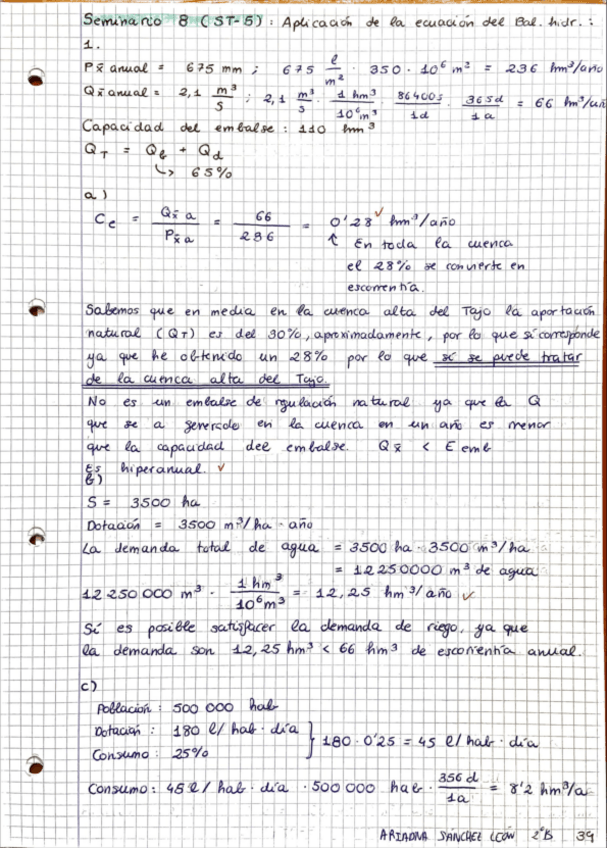 Seminario 8 (ST-5): Aplicación de la ecuación del Bal. hidr.:
1.
Px̄ anual = 675 mm ; 675 l/m² · 350 · 10⁶ m² = 236 hm³/año
Qx̄ anual = 2,1 m³/s ; 2,1 m³/s · 1 hm³/10⁶m³ · 86400s/1d · 365d/1a = 66 hm³/año
Capacidad del embalse : 110 hm³
QT = Qb + Qd
↳ 65%
a)
Ce = Qx̄ a / Px̄ a = 66 / 236 = 0'28 ✓ hm³/año
↑ En toda la cuenca
el 28% se convierte en
escorrentía.
Sabemos que en media en la cuenca alta del Tajo la aportación
natural (QT) es del 30%, aproximadamente, por lo que sí corresponde
ya que he obtenido un 28% por lo que sí se puede tratar
de la cuenca alta del Tajo.
No es un embalse de regulación natural ya que la Q
que se a generado en la cuenca en un año es menor
que la capacidad del embalse. Qx̄ < E emb
Es hiperanual. ✓
b)
S = 3500 ha
Dotación = 3500 m³/ha · año
La demanda total de agua = 3500 ha · 3500 m³/ha
= 12250000 m³ de agua
12 250 000 m³ · 1 hm³/10⁶m³ = 12,25 hm³/año ✓
Sí es posible satisfacer la demanda de riego, ya que
la demanda son 12,25 hm³ < 66 hm³ de escorrentía anual.
c)
Población : 500 000 hab
Dotación : 180 l/hab · día } 180 · 0'25 = 45 l/hab · día
Consumo : 25%
Consumo : 45 l/hab · día · 500 000 hab · 356 d/1a = 8'2 hm³/a
ARIADNA SÁNCHEZ LEÓN 2ºB 39